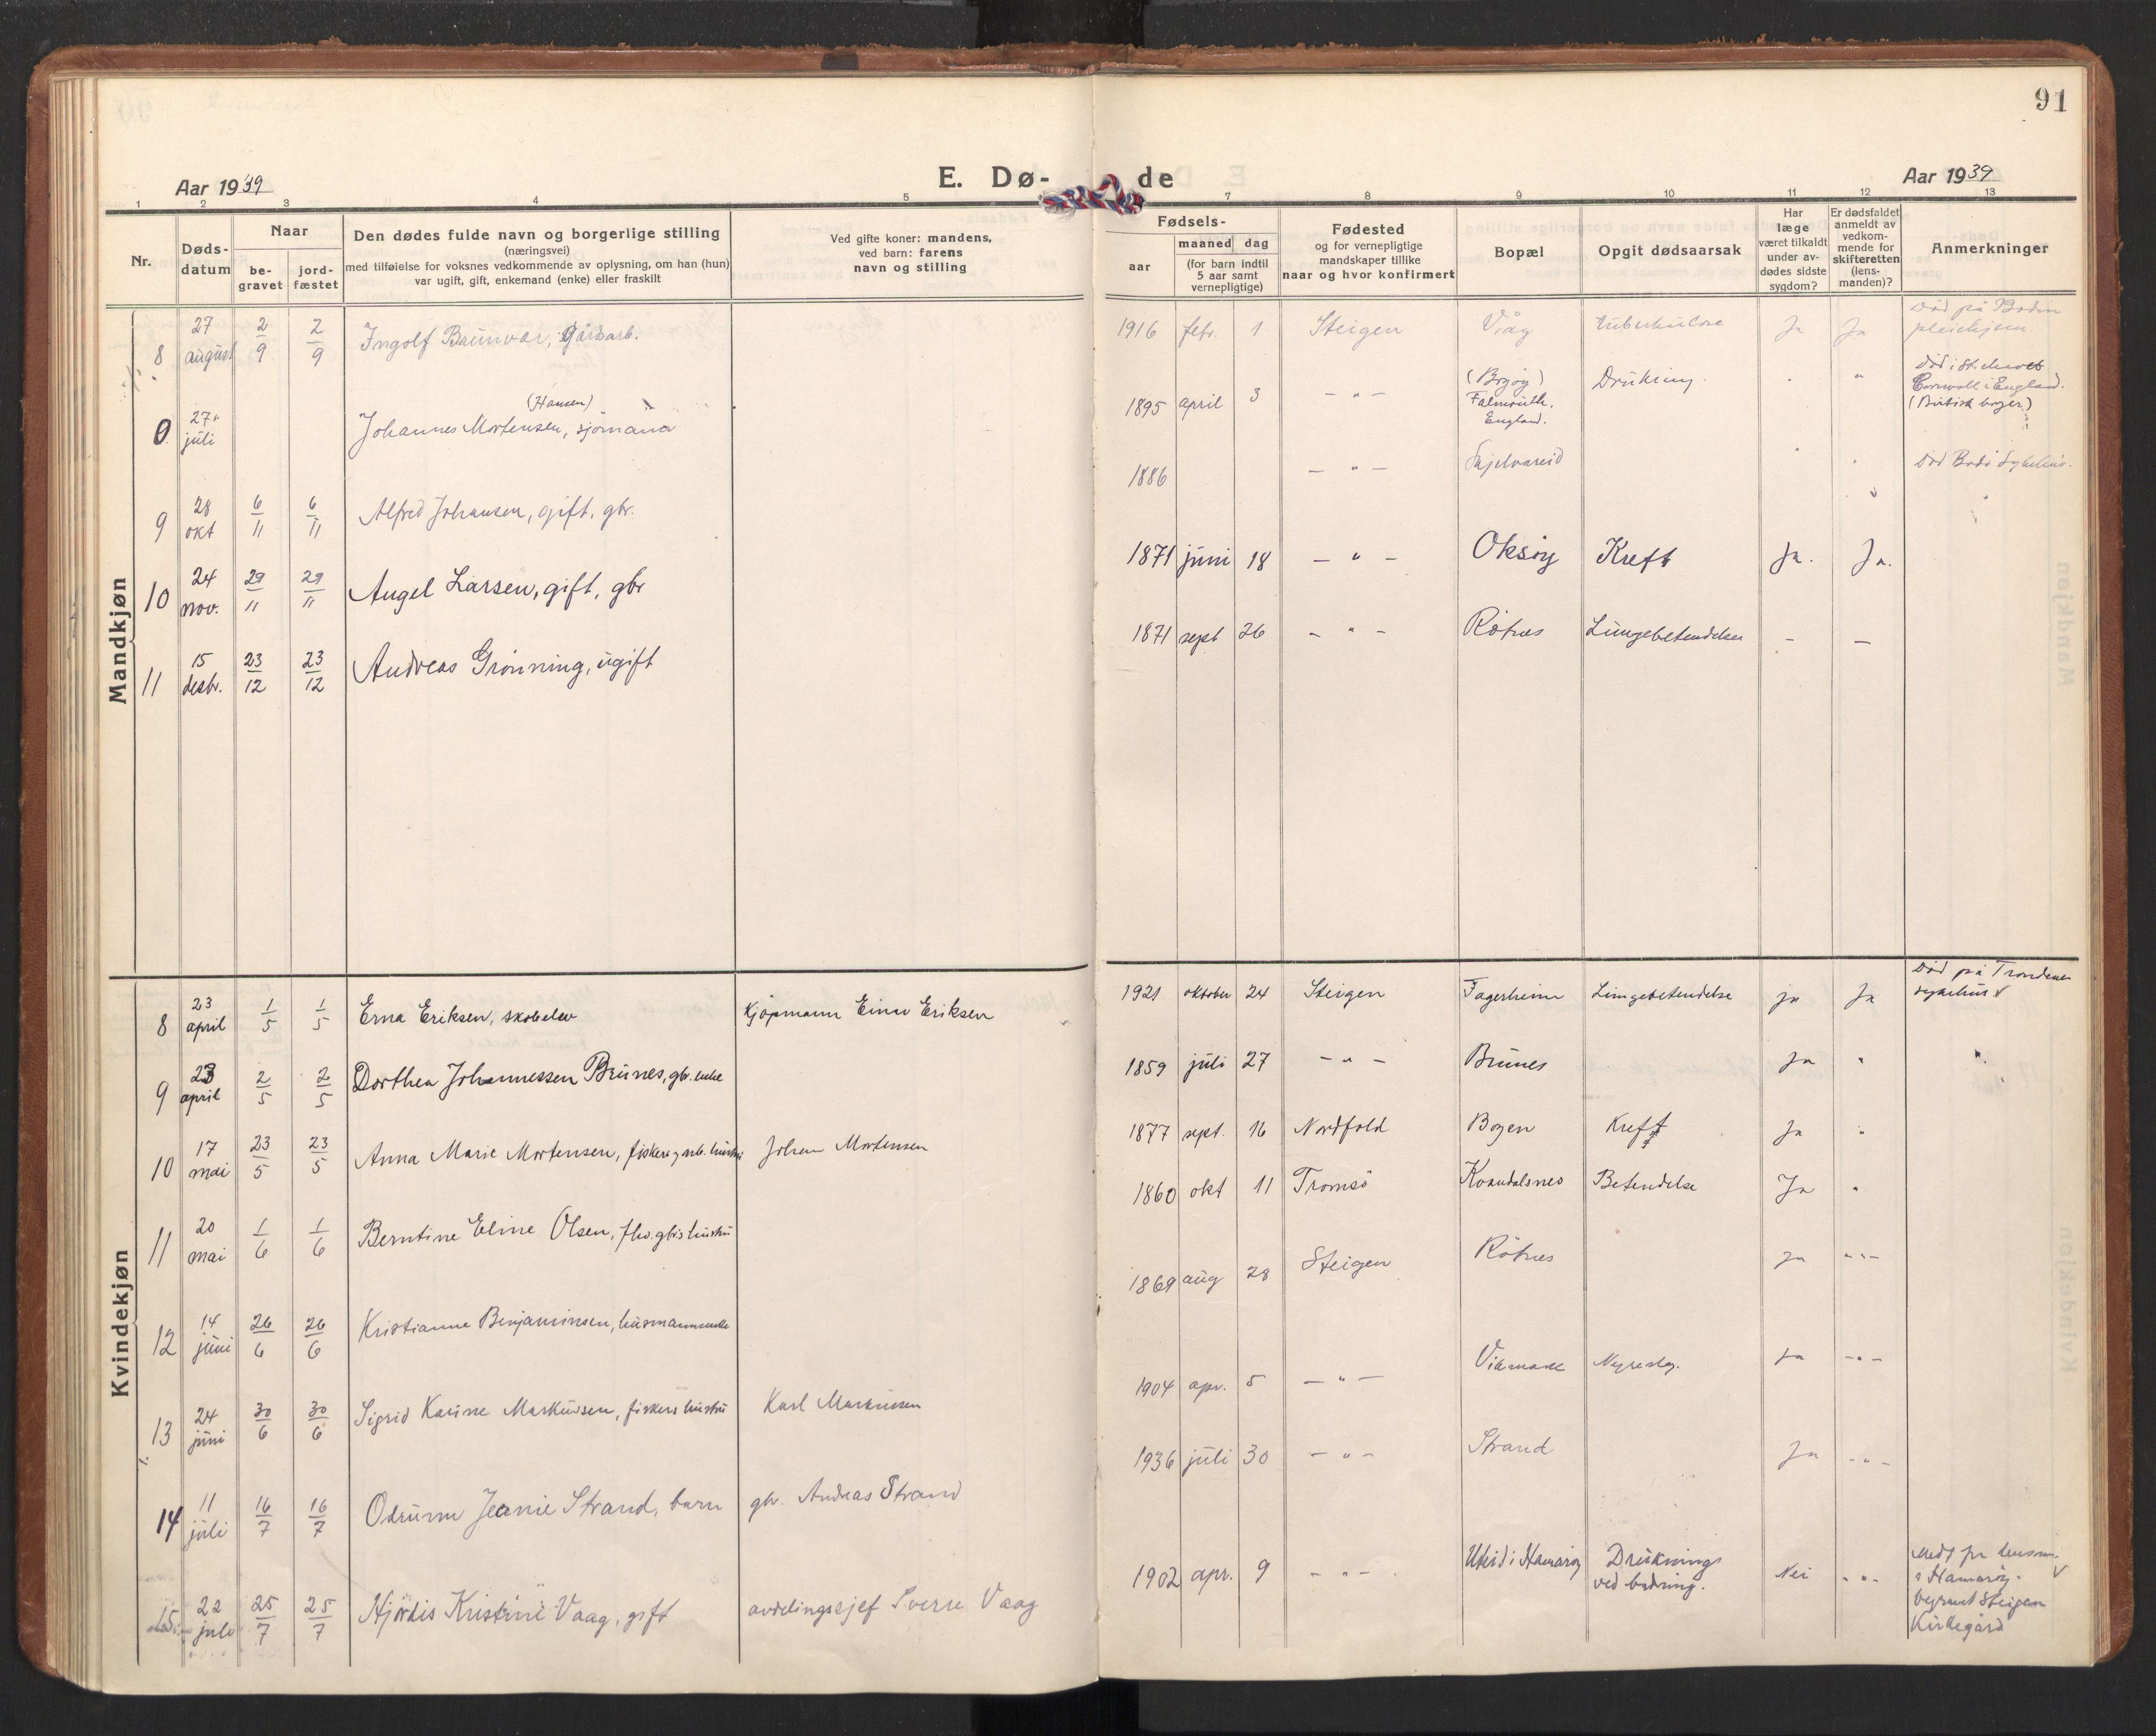 91
Aar 1939
E. Dø-
de
Aar 1939
1 2 3 4 5 7 8 9 10 11 12 13
Nr.
Døds-
datum
Naar
be-
gravet
jord-
fæstet
Den dødes fulde navn og borgerlige stilling
(næringsvei)
med tilføielse for voksnes vedkommende av oplysning, om han (hun)
var ugift, gift, enkemand (enke) eller fraskilt
Ved gifte koner: mandens,
ved barn: farens
navn og stilling
Fødsels-
aar
maaned dag
(for barn indtil
5 aar samt
vernepligtige)
Fødested
og for vernepligtige
mandskaper tillike
naar og hvor konfirmert
Bopæl
Opgit dødsaarsak
Har
læge
været tilkaldt
under av-
dødes sidste
sygdom?
Er dødsfaldet
anmeldt av
vedkom-
mende for
skifteretten
(lens-
manden)?
Anmerkninger
Mandkjøn
8 27 august 2/9 2/9 Ingolf Brunvær, Gårdarb. 1916 febr. 1 Steigen Våg tuberkulose Ja Ja Død på Bodin
pleiehjem
0 27 juli (Hansen)
Johannes Mortensen, sjömann 1895 april 3 - " - (Bogöy)
Falmouth,
England.
Drukning. " Død i St.
Cornwall i England.
(Britisk borger)
9 28 okt 6/11 6/11 Alfred Johansen, gift, gbr. 1886 - " - Skjelvareid " " Død Bodö Sykehus.
10 24 nov. 29/11 29/11 Angel Larsen, gift, gbr 1871 juni 18 - " - Oksöy Kreft Ja. Ja.
11 15 desbr. 23/12 23/12 Andreas Grönning, ugift 1871 sept 26 - " - Rötnes Lungebetendelse - -
Kvindekjøn
8 23 april 1/5 1/5 Erna Eriksen, skoleelev Kjöpmann Einar Eriksen 1921 oktober 24 Steigen Fagerheim Lungebetendelse ja Ja Död på Trondenes
sykehus
9 23 april 2/5 2/5 Dorthea Johannessen Brunes, gbr. enke 1859 juli 27 - " - Brunes Ja " "
10 17 mai 23/5 23/5 Anna Marie Mortensen, fisker og arb. hustru Johan Mortensen 1877 sept. 16 Nordfold Bogen Kreft Ja "
11 20 mai 1/6 1/6 Berntine Eline Olsen, fhv. gbr's hustru 1860 okt 11 Tromsö Betendelse Ja "
12 14 juni 26/6 26/6 Kristianne Benjaminsen, husmannsenke 1869 aug 28 Steigen Rötnes Ja - " -
13 24 juni 30/6 30/6 Sigrid Karine Markussen, fiskers hustru Karl Markussen 1904 apr. 5 - " - Nyresyg. Ja - " -
14 11 juli 16/7 16/7 Odrunn Jeanie Strand, barn gbr. Andreas Strand 1936 juli 30 - " - Strand Ja - " -
15 22 juli 25/7 25/7 Hjördis Kristine Vaag, gift avdelingssjef Sverre Vaag 1902 apr. 9 - " - Uteid i Hamaröy Druknings
ved badning. Nei - " - Medt fra lensm.
i Hamaröy.
begravet Steigen
Kirkegård